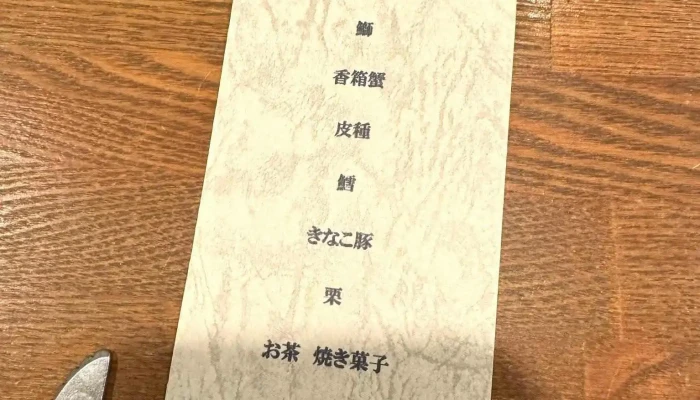 鰤
香箱蟹
皮種
鱈
きなこ豚
栗
お茶 焼き菓子